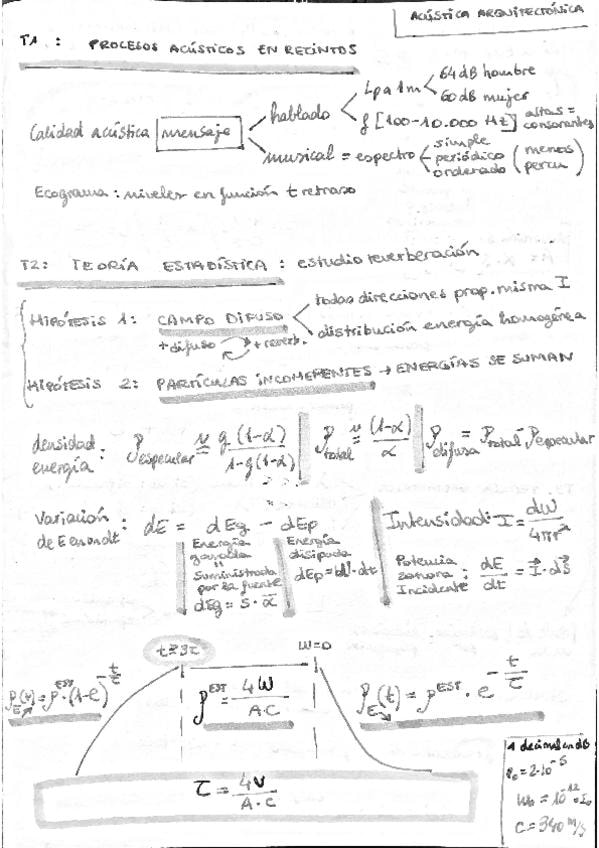 ACÚSTICA ARQUITECTÓNICA
T1 : PROCESOS ACÚSTICOS EN RECINTOS
Calidad acústica mensaje
hablado
Lp a 1m
64 dB hombre
60 dB mujer
f [100-10.000 Hz] altas = consonantes
musical = espectro
simple
periódico
ordenado
(menos percu)
Ecograma : niveles en función t retraso
T2: TEORÍA ESTADÍSTICA : estudio reverberación
HIPÓTESIS 1: CAMPO DIFUSO
todas direcciones prop. misma I
distribución energía homogénea
+ difuso + reverb.
HIPÓTESIS 2: PARTÍCULAS INCOHERENTES → ENERGÍAS SE SUMAN
densidad energía : ρ especular = g (1-α) / 1-g(1-α) ρ total = (1-α) / α ρ difusa = ρ total - ρ especular
Variación de E en on dt : dE = dEg - dEp
Energía ganada
"
Suministrada por la fuente
dEg = S · α
Energía disipada
dEp = W · dt
Intensidad: I = dW / 4πr²
Potencia sonora Incidente : dE / dt = I · dS
t≥3τ
W=0
ρE(t) = ρ EST · (1-e) -t/τ
ρ EST = 4W / A·C
ρE(t) = ρ EST · e -t/τ
τ = 4V / A·C
1 decimal en dB
P₀ = 2·10⁻⁵
W₀ = 10⁻¹² = I₀
C = 340 m/s